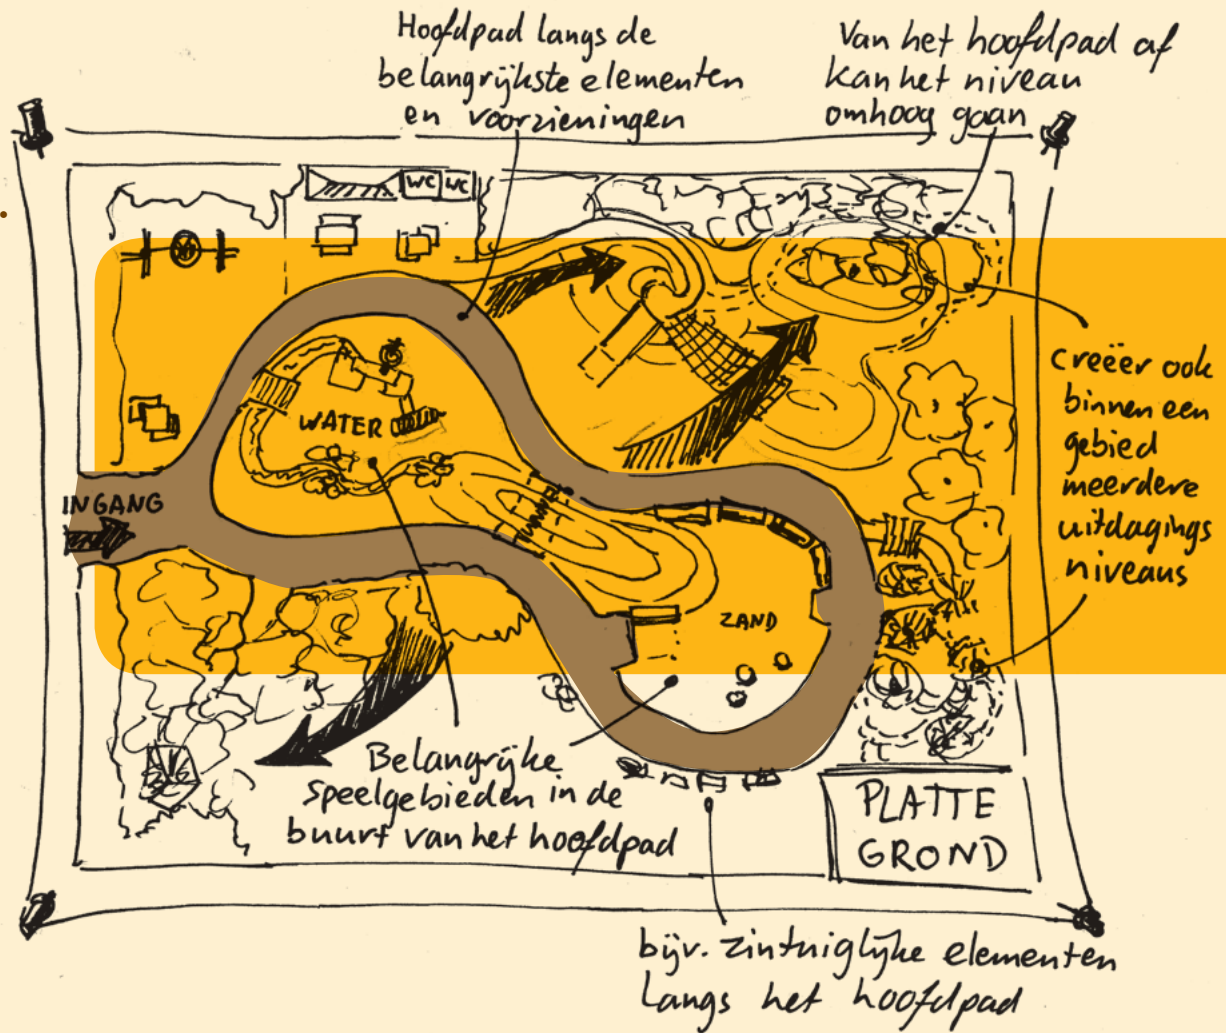 Hoofdpad langs de
belangrijkste elementen
en voorzieningen
Van het hoofdpad af
kan het niveau
omhoog gaan
WC WC
creëer ook
binnen een
gebied
meerdere
uitdagings
niveaus
WATER
INGANG
ZAND
Belangrijke
speelgebieden in de
buurt van het hoofdpad
PLATTE
GROND
bijv. zintuiglijke elementen
langs het hoofdpad